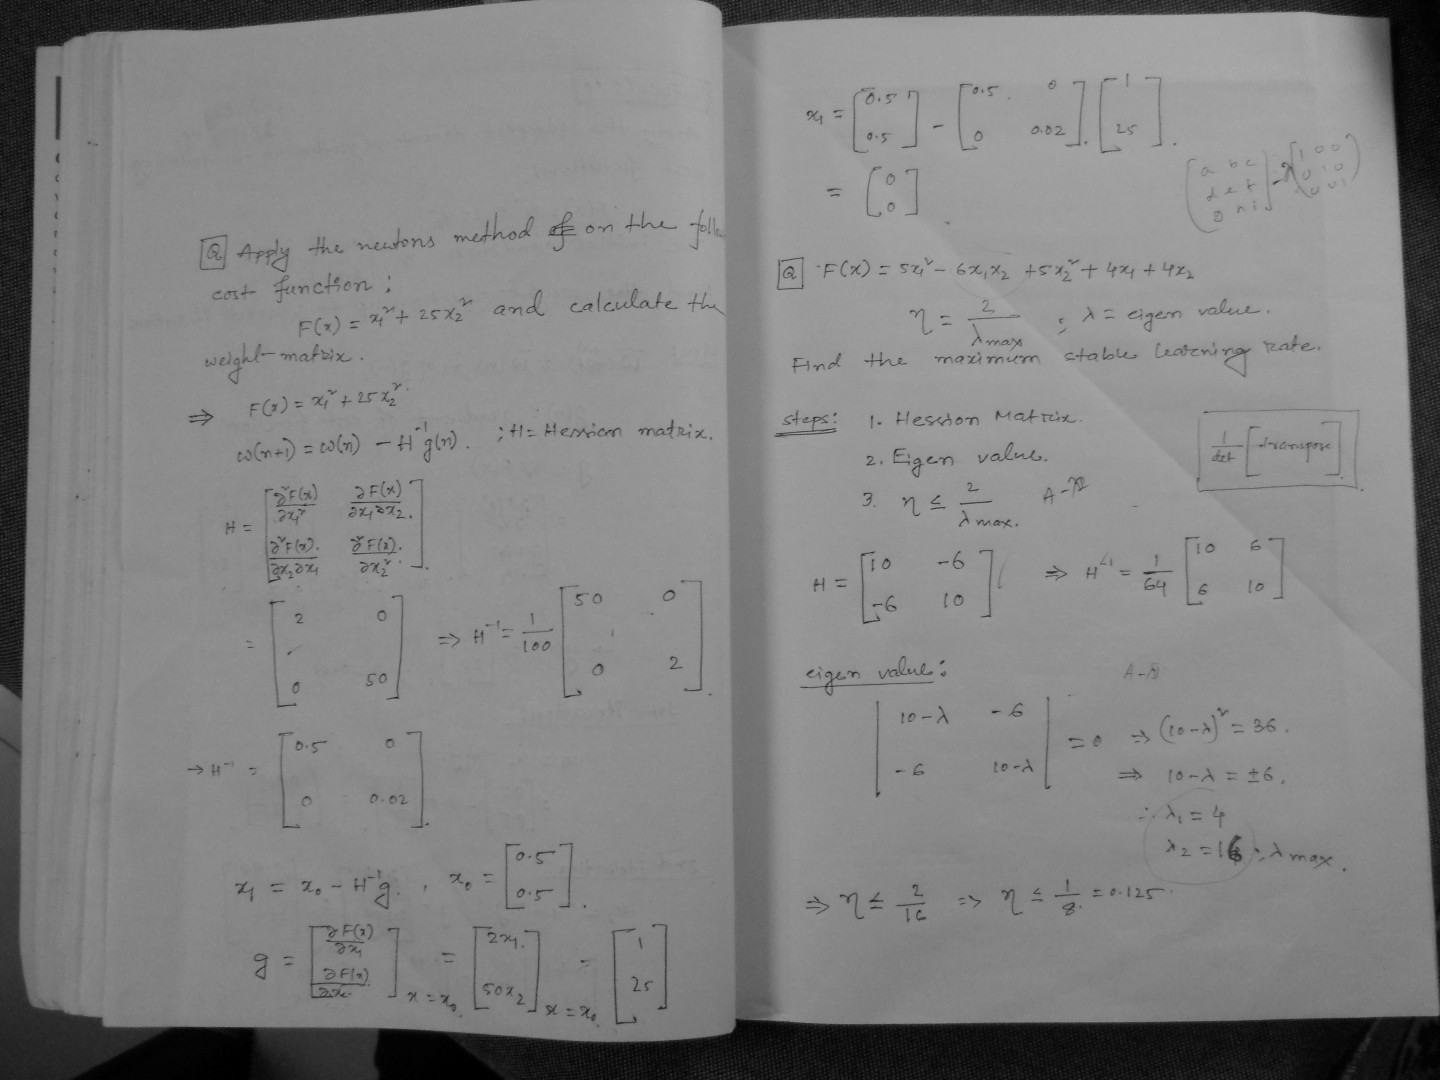 Q Apply the newtons method on the
cost function :
F(x) = x₁² + 25x₂² and calculate the
weight matrix.
⇒ F(x) = x₁² + 25x₂².
ω(n+1) = ω(n) - H⁻¹g(n). ; H = Hessian matrix.
H = [∂²F(x)/∂x₁² ∂F(x)/∂x₁∂x₂.
∂²F(x)./∂x₂∂x₁ ∂²F(x)./∂x₂²].
= [2 0
0 50] ⇒ H⁻¹ = 1/100 [50 0
0 2].
→ H⁻¹ = [0.5 0
0 0.02].
x₁ = x₀ - H⁻¹g. , x₀ = [0.5
0.5].
g = [∂F(x)/∂x₁
∂F(x)/∂x₂] x = x₀ = [2x₁.
50x₂] x = x₀. = [1
25]
x₁ = [0.5
0.5] - [0.5. 0
0 0.02] . [1
25].
= [0
0].
Q F(x) = 5x₁² - 6x₁x₂ + 5x₂² + 4x₁ + 4x₂
η = 2/λmax ; λ = eigen value.
Find the maximum stable learning rate.
steps: 1. Hession Matrix.
2. Eigen value.
3. η ≤ 2/λmax.
1/det [transpose]
H = [10 -6
-6 10] ⇒ H⁻¹ = 1/64 [10 6
6 10]
eigen value:
|10-λ -6
-6 10-λ| = 0 ⇒ (10-λ)² = 36.
⇒ 10-λ = ±6.
∴ λ₁ = 4
λ₂ = 16 = λmax.
⇒ η ≤ 2/16 ⇒ η ≤ 1/8. = 0.125.